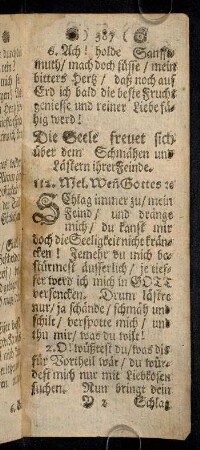 ) 387 (
6. Ach! holde Sanfft-
muth/ mach doch süsse/ mein
bitters Hertz/ daß noch auf
Erd ich bald die beste Frucht
geniesse und reiner Liebe fä-
hig werd!
Die Seele freuet sich
über dem Schmähen und
Lästern ihrer Feinde.
112. Mel. Weñ Gottes ꝛc
SChlag immer zu/ mein
Feind/ und dränge
mich/ du kanst mir
doch die Seeligkeit nicht krän-
cken! Jemehr du mich be-
stürmest äusserlich/ je tief-
fer werd ich mich in GOTT
versencken. Drum lästre
nur/ ja schände/ schmäh und
schilt/ verspotte mich/ und
thu mir/ was du wilt!
2. O! wüßtest du/ was dis
für Vortheil wär/ du wür-
dest mich nur mit Liebkosen
suchen. Nun bringt dein
Schlag